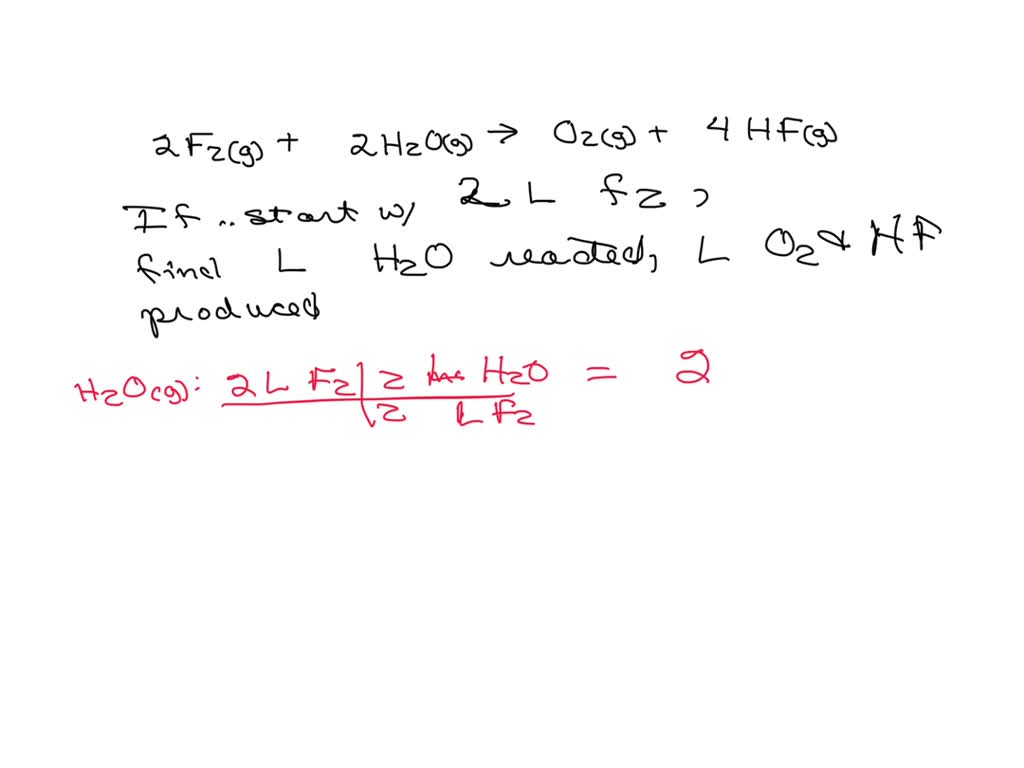 2F2(g) + 2H2O(g) → O2(g) + 4HF(g)
If .. start w/ 2 L F2,
find L H2O reacted, L O2 & HF
produced
H2O(g): 2L F2 | 2 H2O = 2
2 L F2